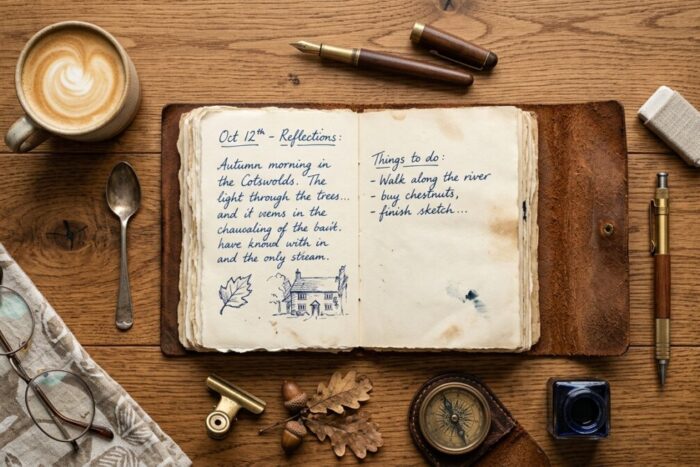 Oct 12th - Reflections:
Autumn morning in
the Cotswolds. The
light through the trees...
and it in the
of the
have knowd with in
and the only stream.
Things to do:
- Walk along the river
- buy chestnuts,
- finish sketch...